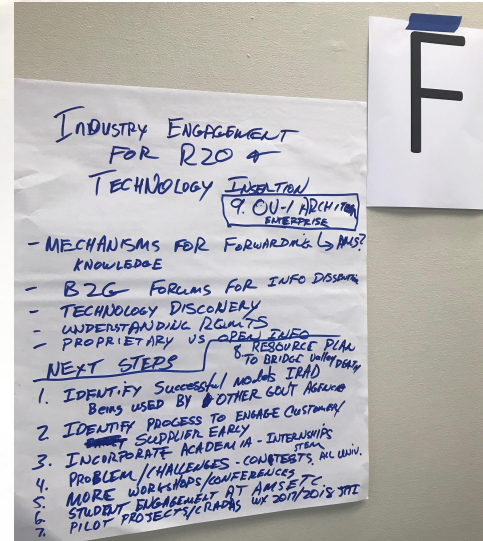 F
INDUSTRY ENGAGEMENT
FOR R20 &
TECHNOLOGY INSERTION
9. OV-1 ARCHITEC
ENTERPRISE
- MECHANISMS FOR FORWARDING ↳ AMS?
KNOWLEDGE
- B2G FORUMS FOR INFO
- TECHNOLOGY DISCOVERY
- UNDERSTANDING RQMTS
- PROPRIETARY VS OPEN INFO
NEXT STEPS
8. RESOURCE PLAN
TO BRIDGE Valley DEATH
1. IDENTIFY Successful models IRAD
Being USED BY OTHER GOVT AGENCIE
2 IDENTIFY PROCESS TO ENGAGE CUSTOMER/
SUPPLIER EARLY
3. INCORPORATE ACADEMIA - INTERNSHIPS
STEM
4. PROBLEM/CHALLENGES - CONTESTS, UNIV.
5. MORE WORKSHOPS/CONFERENCES
6 STUDENT ENGAGEMENT AT AMSETC
7. PILOT PROJECTS/CRADAS 2017/2018